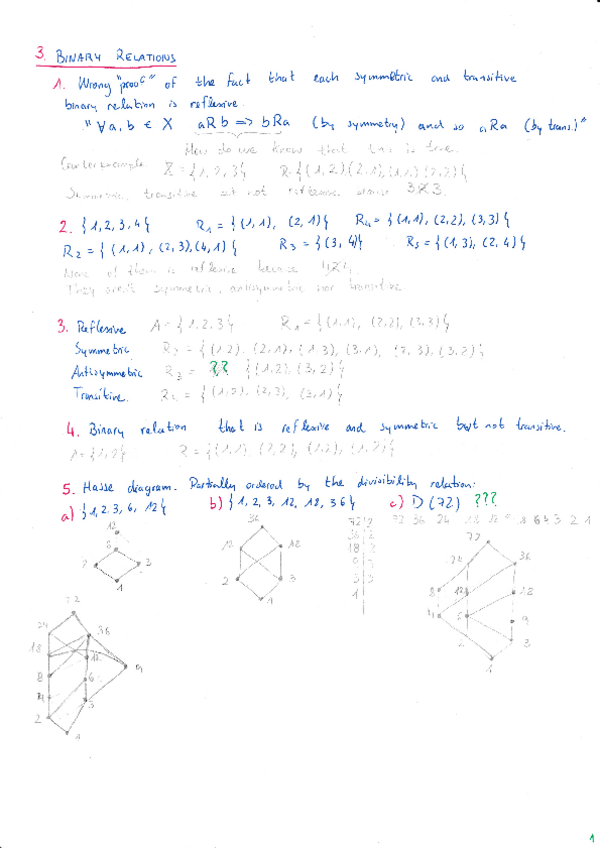 3. BINARY RELATIONS
1. Wrong "proof" of the fact that each symmetric and transitive
binary relation is reflexive.
"∀a,b ∈ X aRb => bRa (by symmetry) and so aRa (by trans.)"
How do we know that this is true.
Counterexample X = {1,2,3} R = {(1,2)(2,1),(1,1)(2,2)}
Symmetric, transitive but not reflexive
2. {1,2,3,4} R₁ = {(1,1), (2,1)} R₄ = {(1,1), (2,2), (3,3)}
R₂ = {(1,1), (2,3),(4,1)} R₃ = {(3,4)} R₅ = {(1,3), (2,4)}
None of them is reflexive because
They aren't symmetric, antisymmetric nor transitive
3. Reflexive A = {1,2,3} R₁ = {(1,1), (2,2), (3,3)}
Symmetric R₂ = {(1,2), (2,1), (1,3), (3,1), (2,3), (3,2)}
Antisymmetric R₃ = ?? {(1,2), (3,2)}
Transitive. R₄ = {(2,3),
4. Binary relation that is reflexive and symmetric but not transitive.
5. Hasse diagram. Partially ordered by the divisibility relation:
a) {1,2,3,6,12} b) {1,2,3,12,18,36} c) D(72) ???
12
6
2 3
1
36
12
2 3
1
72 2
36 2
18 2
9 3
3 3
1
72
24 36
8
4 6 9
2 3
1
72
24 36
18 12
8 6 9
4 3
2
1
1